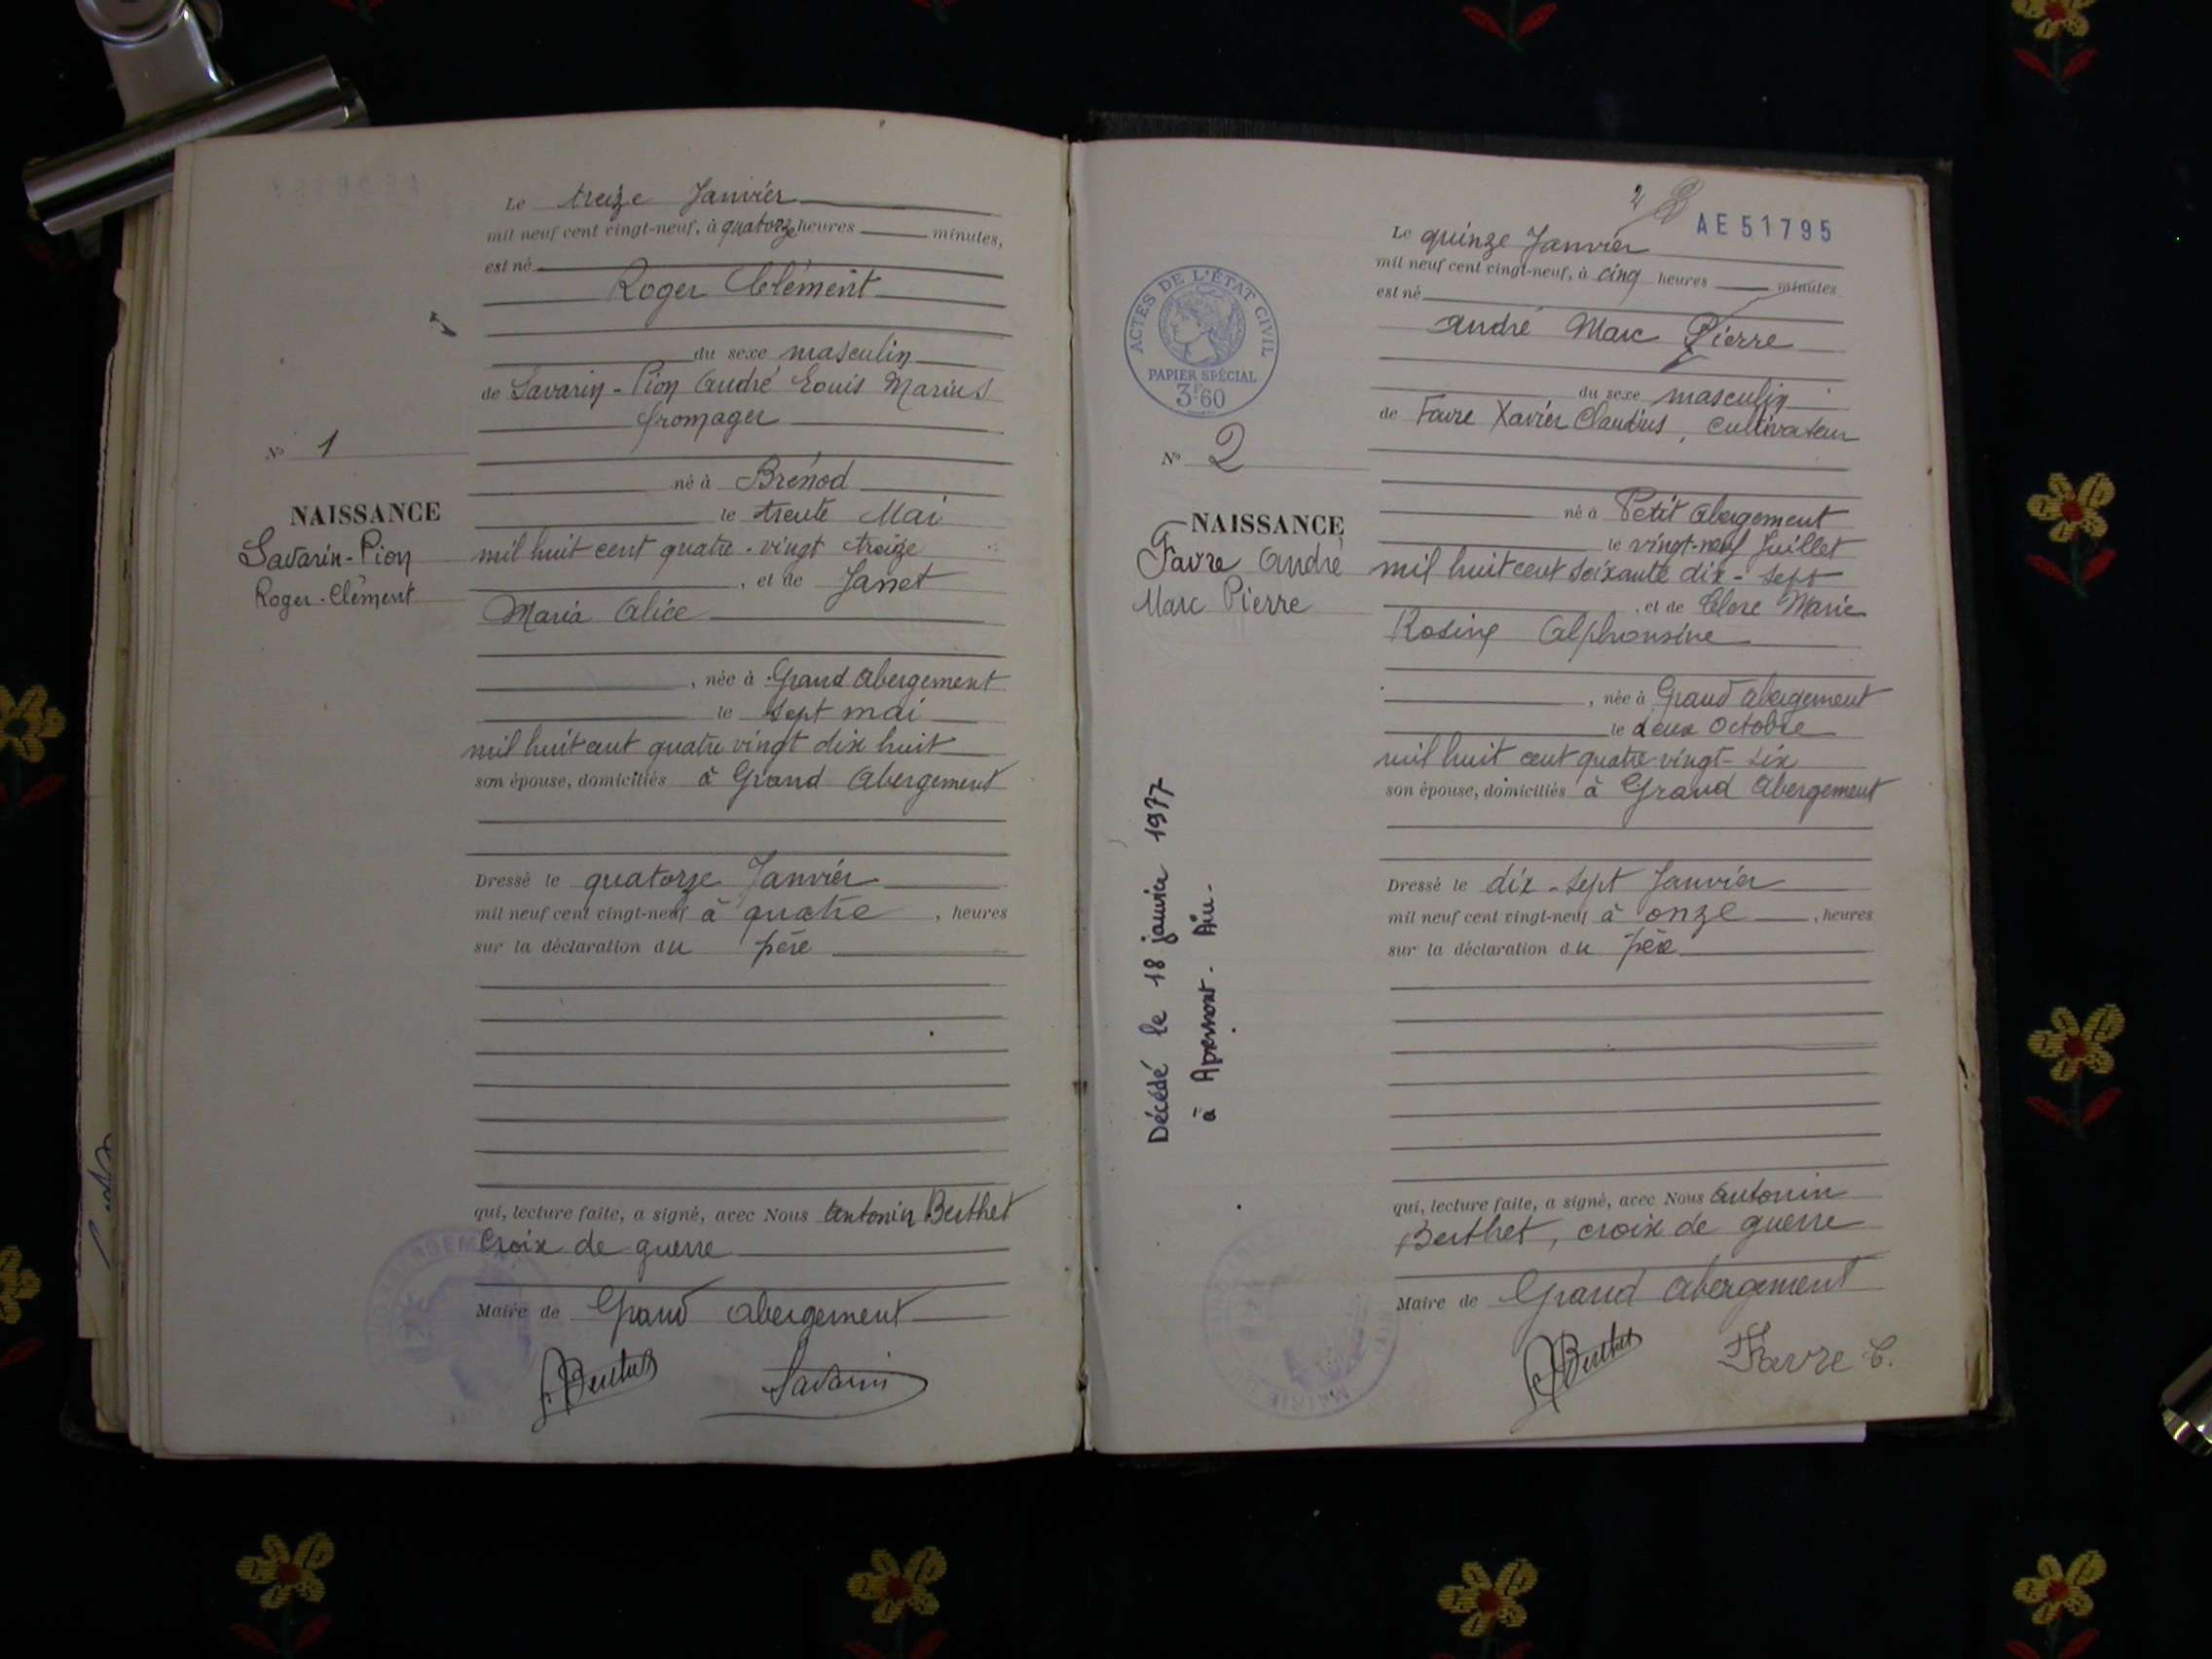 Le treize Janvier
mil neuf cent vingt-neuf, à quatorze heures minutes,
est né
Roger Clément
du sexe masculin
de Savarin-Pion André Louis Marius
fromager
N° 1
né à Brénod
NAISSANCE
le trente Mai
Savarin-Pion
mil huit cent quatre-vingt treize
Roger-Clément
, et de Janet
Maria Alice
, née à Grand Abergement
le sept mai
mil huit cent quatre vingt dix huit
son épouse, domiciliés à Grand Abergement
Dressé le quatorze Janvier
mil neuf cent vingt-neuf à quatre , heures
sur la déclaration du père
qui, lecture faite, a signé, avec Nous Antonin Berthet
Croix de guerre
Maire de Grand Abergement
Berthet Savarin
2
AE51795
Le quinze Janvier
mil neuf cent vingt-neuf, à cinq heures minutes
est né
André Marc Pierre
ACTES DE L'ÉTAT CIVIL
PAPIER SPÉCIAL
3F60
du sexe masculin
de Favre Xavier Claudius, Cultivateur
N° 2
né à Petit Abergement
NAISSANCE
le vingt-neuf Juillet
Favre André
mil huit cent soixante dix-sept
Marc Pierre
, et de Clere Marie
Rosine Alphonsine
, née à Grand Abergement
le deux Octobre
mil huit cent quatre-vingt-six
son épouse, domiciliés à Grand Abergement
Décédé le 18 janvier 1977
à Apremont - Ain -
Dressé le dix-sept Janvier
mil neuf cent vingt-neuf à onze , heures
sur la déclaration du père
qui, lecture faite, a signé, avec Nous Antonin
Berthet, croix de guerre
Maire de Grand Abergement
Berthet Favre C.